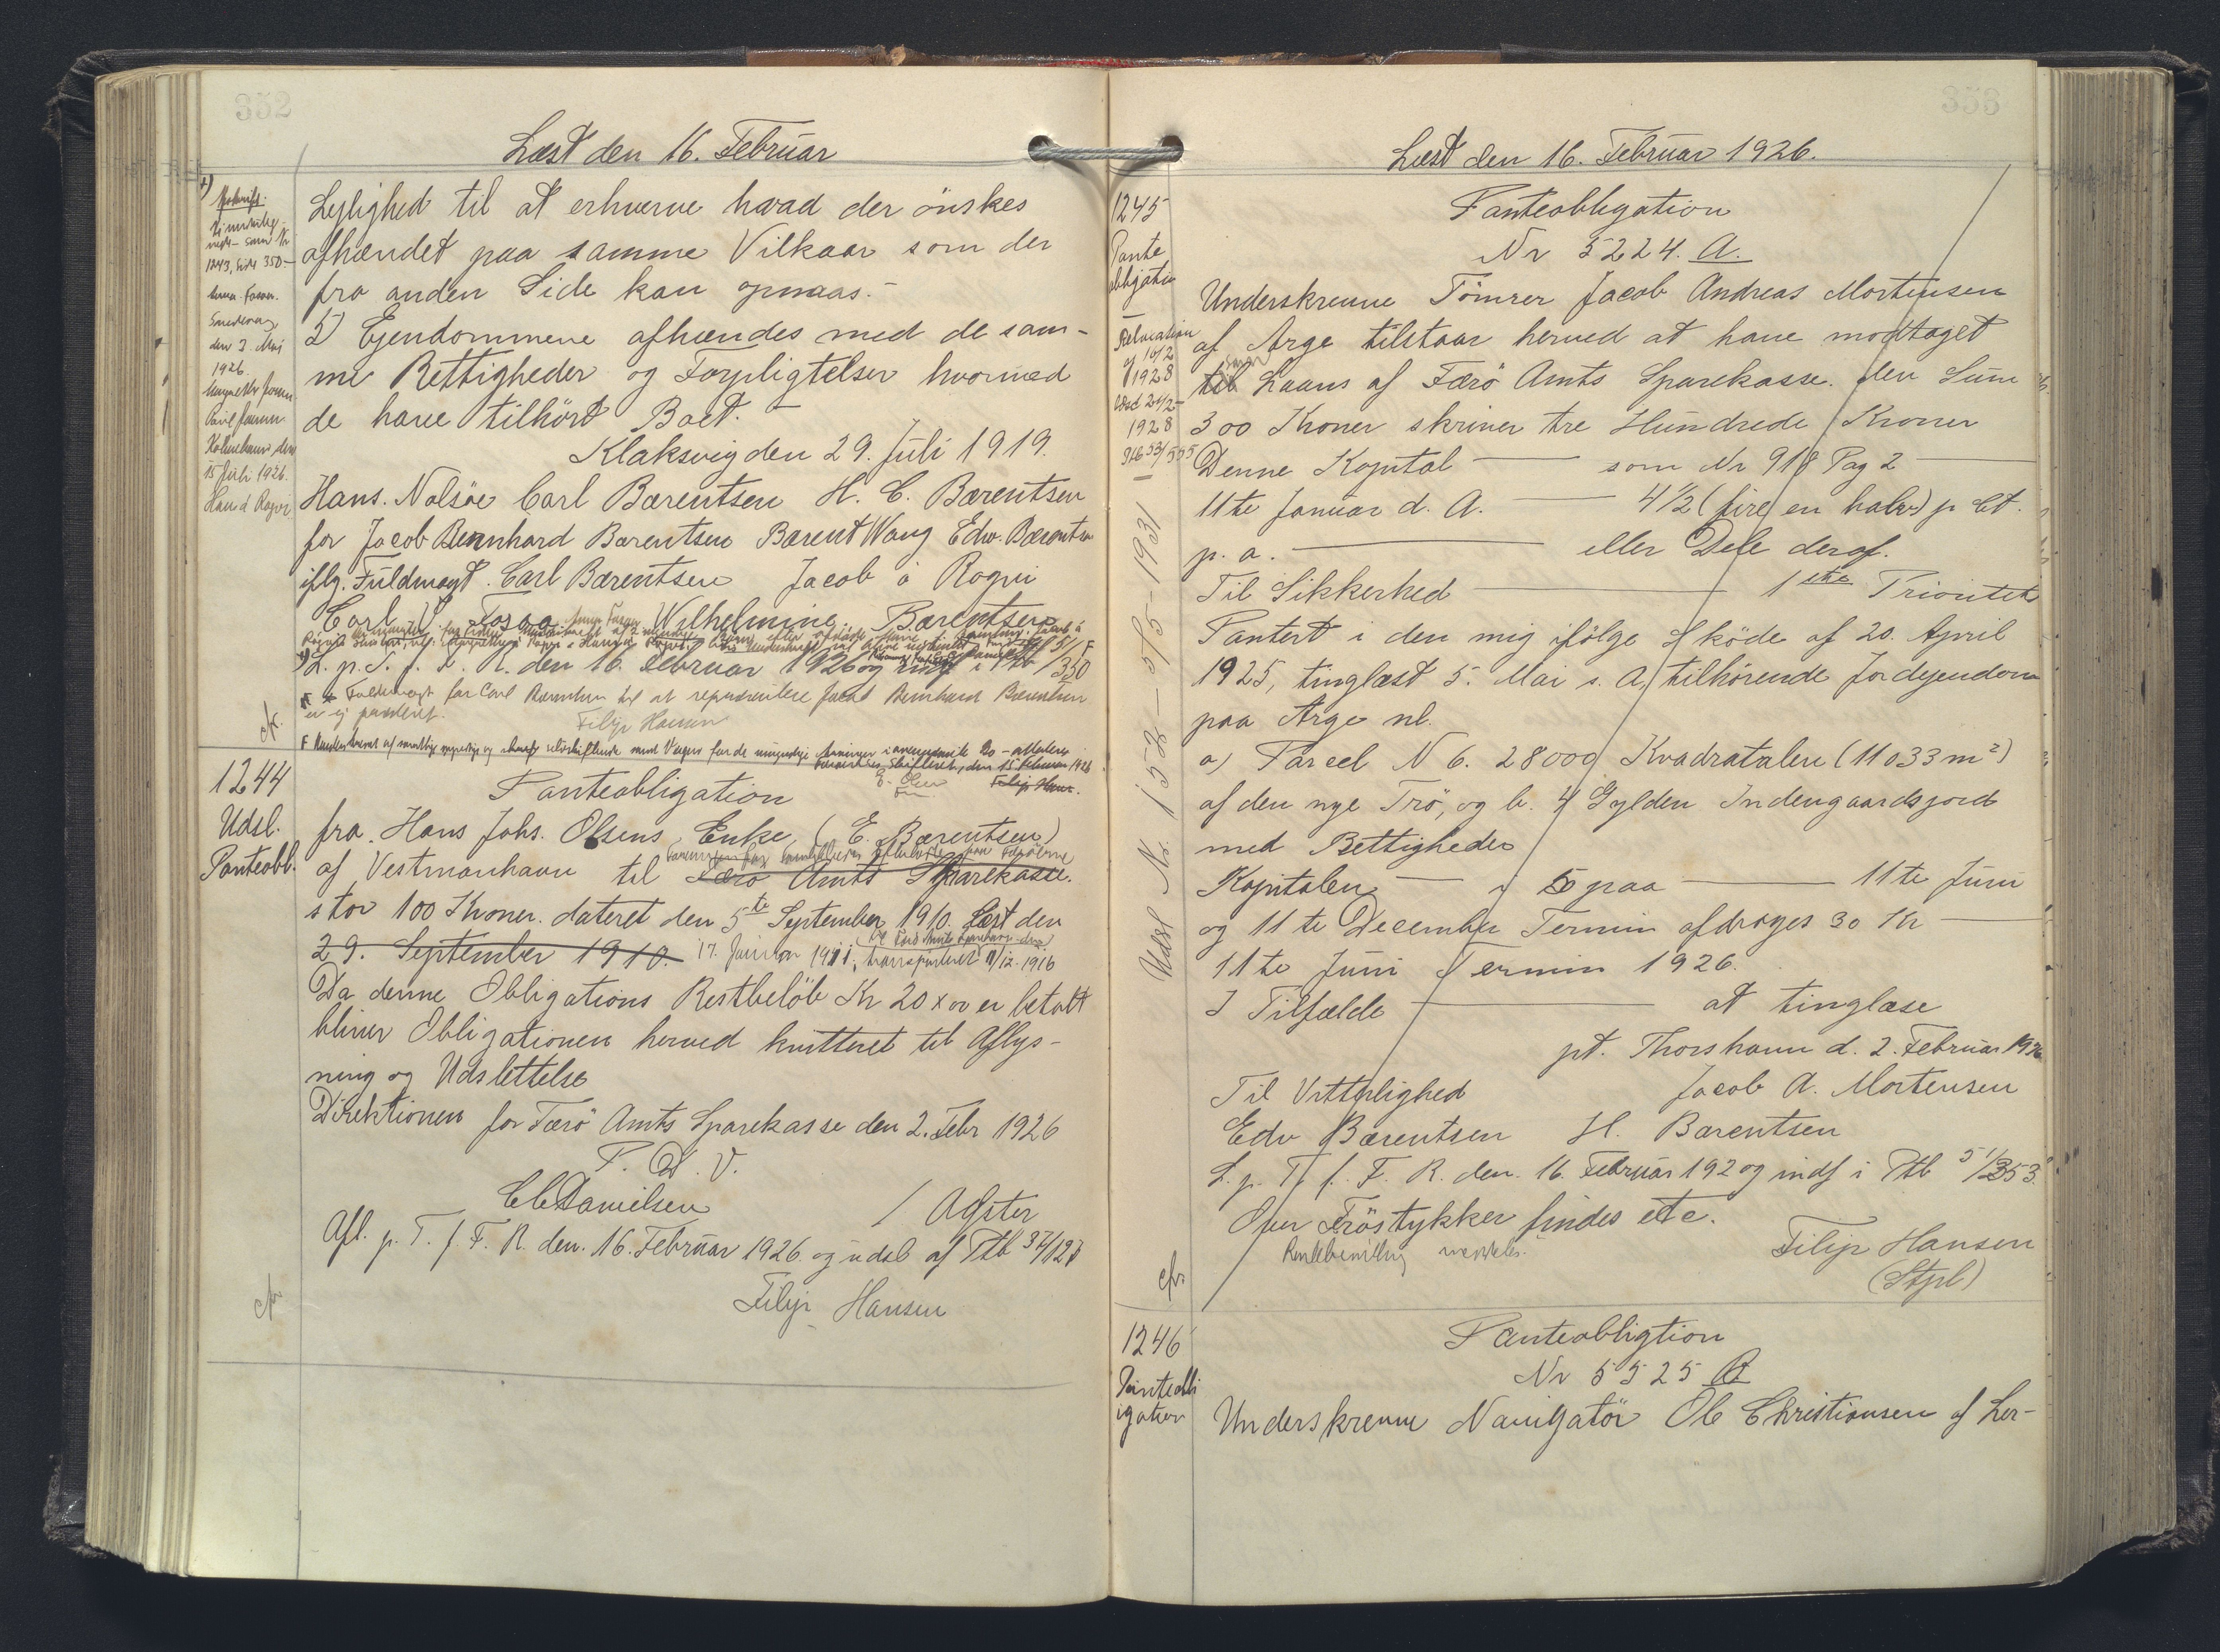 352
Læst den 16. Februar
Lejlighed til at erhverve hvad der ønskes
afhændet paa samme Vilkaar som der
fra anden Side kan opnaas.-
5) Ejendommene afhændes med de sam-
me Rettigheder og Forpligtelser hvormed
de have tilhört Boet. -
Klaksvig den 29. Juli 1919.
Hans. Nolsöe Carl Bærentsen H. C. Bærentsen
for Jacob Bernhard Bærentsen Bærent Wang Edw. Bærentsen
iflg. Fuldmagt. Carl Bærentsen Jacob á Rogvi
Wilhelmine Bærentsen
L. p. T. f. F. R. den 16. Februar 1926 og indf i Ptb 51/350
Fuldmagt for Carl Bærentsen til at repræsentere Jacob Bernhard Bærentsen
er ej
Filip Hansen
1243, Side 350.-
den 3 Mai
1926.
København, den
15 Juli 1926.
cfr.
1244
Udsl.
Panteobl.
Panteobligation
fra Hans Johs. Olsens Enke (E. Bærentsen)
af Vestmanhavn til Færö Amts Sparekasse.
stor 100 Kroner. dateret den 5te September 1910. Læst den
29. September 1910. 17. Januar 1911, transporteret 9/12-1916
Da denne Obligations Restbelöb Kr 20 x 00 er betalt
bliver Obligationen herved kvitteret til Aflys-
ning og Udslettelse
Direktionen for Færö Amts Sparekasse den 2. Febr 1926
P. D. V.
C C Danielsen / Agster
Afl. p. T. f. F. R. den. 16. Februar 1926. og udsl af Ptb 37/127
Filip Hansen
cfr
353
Læst den 16. Februar 1926.
1245
Pante
obligation
1928
Læst 21/2-
1928
Ptb 53/555
Udsl Nr. 1552 - 5/5-1931
Panteobligation
Nr 5224. A.
Underskrevne Tömrer Jacob Andreas Mortensen
af Arge tilstaar herved at have modtaget
til Laans af Færö Amts Sparekasse. den Sum
300 Kroner skriver tre Hundrede Kroner
Denne Kapital — som Nr 918 Pag 2 —
11te Januar d. A. — 4 1/2 (fire en halv) p Ct.
p. a. — eller Dele deraf.
Til Sikkerhed — 1ste Prioritets
Panteret i den mig ifölge Skøde af 20. April
1925, tinglæst 5. Mai s. A, tilhørende Jordejendom
paa Arge nl.
a) Parcel N 6. 28000 Kvadratalen (11033 m²)
af den nye Trö, og b. 4 Gylden Indengaardsjord
med Rettigheder
Kapitalen — paa — 11te Juni
og 11te December Termin afdrages 30 Kr —
11te Juni Termin 1926.
I Tilfælde — at tinglæse
pt. Thorshavn d. 2. Februar 1926
Til Vitterlighed Jacob A. Mortensen
Edv Bærentsen H. Bærentsen
L. p. T. f. F. R. den. 16. Februar 192 og indf i Ptb 51/353.
Over Tröstykker findes etc.
Filip Hansen
(Stpl)
cfr
1246
Panteobli
igation
Panteobligtion
Nr 5525 A
Underskrevne Navigatör Ole Christiansen af Ler-